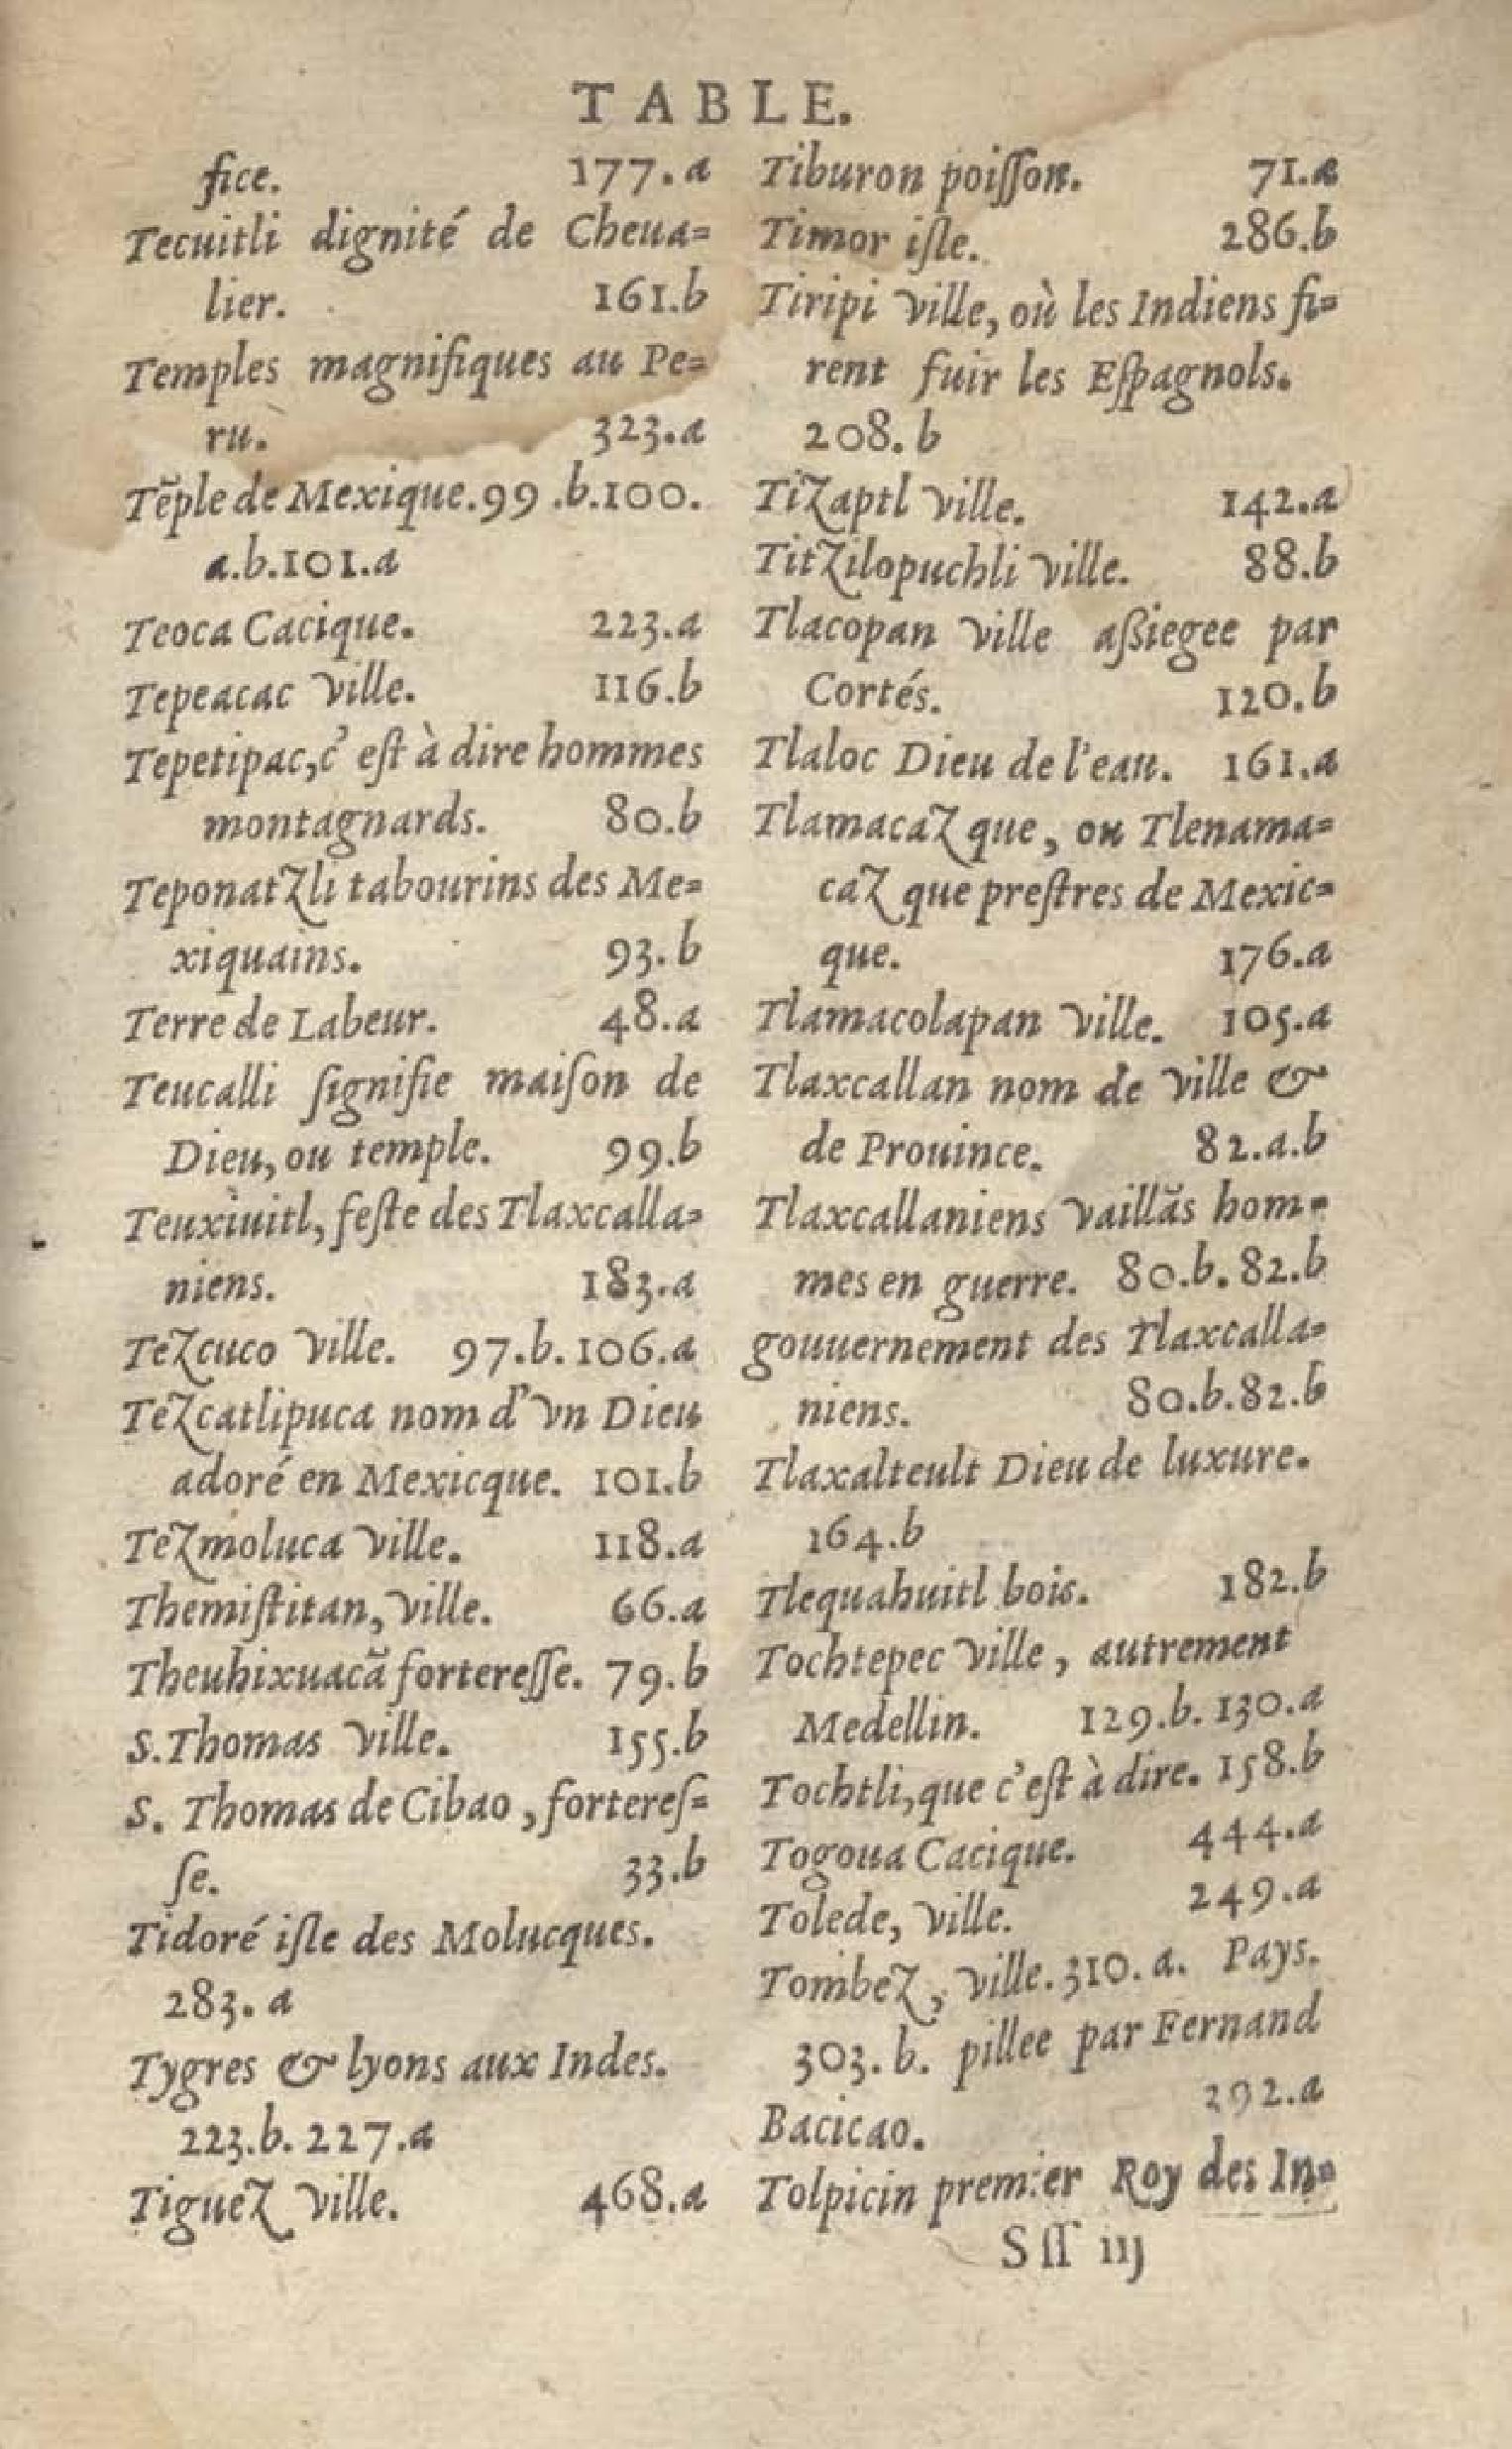 TABLE.
fice. 177.a
Tecuitli dignité de Cheua=
lier. 161.b
Temples magnifiques au Pe=
ru. 323.a
Tẽple de Mexique.99.b.100.
a.b.101.a
Teoca Cacique. 223.a
Tepeacac ville. 116.b
Tepetipac,c'eſt à dire hommes
montagnards. 80.b
Teponatzli tabourins des Me=
xiquains. 93.b
Terre de Labeur. 48.a
Teucalli ſignifie maiſon de
Dieu,ou temple. 99.b
Teuxiuitl,feſte des Tlaxcalla=
niens. 183.a
Tezcuco ville. 97.b.106.a
Tezcatlipuca nom d'vn Dieu
adoré en Mexicque. 101.b
Tezmoluca ville. 118.a
Themiſtitan, ville. 66.a
Theuhixuacã fortereſſe. 79.b
S.Thomas ville. 155.b
S. Thomas de Cibao, fortereſ=
ſe. 33.b
Tidoré iſle des Molucques.
283.a
Tygres & lyons aux Indes.
223.b.227.a
Tiguez ville. 468.a
Tiburon poiſſon. 71.a
Timor iſle. 286.b
Tiripi ville, où les Indiens fi=
rent fuir les Eſpagnols.
208.b
Tizaptl ville. 142.a
Titzilopuchli ville. 88.b
Tlacopan ville aßiegee par
Cortés. 120.b
Tlaloc Dieu de l'eau. 161.a
Tlamacaz que, ou Tlenama=
caz que preſtres de Mexic=
que. 176.a
Tlamacolapan ville. 105.a
Tlaxcallan nom de ville &
de Prouince. 82.a.b
Tlaxcallaniens vaillãs hom=
mes en guerre. 80.b.82.b
gouuernement des Tlaxcalla=
niens. 80.b.82.b
Tlaxalteult Dieu de luxure.
164.b
Tlequahuitl bois. 182.b
Tochtepec ville, autrement
Medellin. 129.b.130.a
Tochtli,que c'eſt à dire. 158.b
Togoua Cacique. 444.a
Tolede, ville. 249.a
Tombez, ville.310.a. Pays.
303.b. pillee par Fernand
Bacicao. 292.a
Tolpicin premier Roy des In=
Sſſ iij